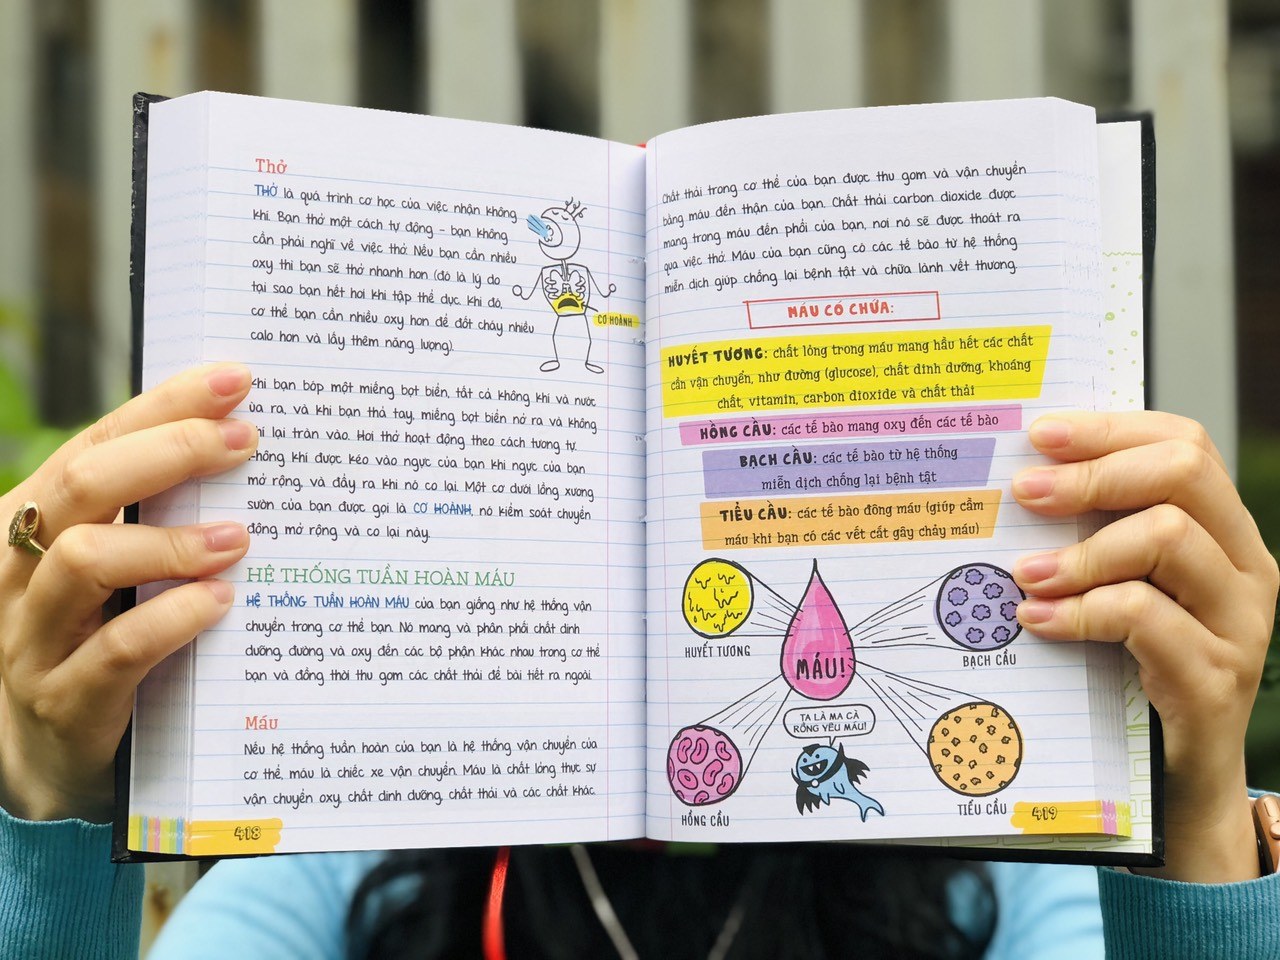 Thở
THỞ là quá trình cơ học của việc nhận không
khí. Bạn thở một cách tự động - bạn không
cần phải nghĩ về việc thở. Nếu bạn cần nhiều
oxy thì bạn sẽ thở nhanh hơn (đó là lý do
tại sao bạn hết hơi khi tập thể dục. Khi đó,
cơ thể bạn cần nhiều oxy hơn để đốt cháy nhiều
calo hơn và lấy thêm năng lượng).
CƠ HOÀNH
khi bạn bóp một miếng bọt biển, tất cả không khí và nước
ùa ra, và khi bạn thả tay, miếng bọt biển nở ra và không
khí lại tràn vào. Hơi thở hoạt động theo cách tương tự.
không khí được kéo vào ngực của bạn khi ngực của bạn
mở rộng, và đẩy ra khi nó co lại. Một cơ dưới lồng xương
sườn của bạn được gọi là CƠ HOÀNH, nó kiểm soát chuyển
động mở rộng và co lại này.
HỆ THỐNG TUẦN HOÀN MÁU
HỆ THỐNG TUẦN HOÀN MÁU của bạn giống như hệ thống vận
chuyển trong cơ thể bạn. Nó mang và phân phối chất dinh
dưỡng, đường và oxy đến các bộ phận khác nhau trong cơ thể
bạn và đồng thời thu gom các chất thải để bài tiết ra ngoài.
Máu
Nếu hệ thống tuần hoàn của bạn là hệ thống vận chuyển của
cơ thể, máu là chiếc xe vận chuyển. Máu là chất lỏng thực sự
vận chuyển oxy, chất dinh dưỡng, chất thải và các chất khác.
418
Chất thải trong cơ thể của bạn được thu gom và vận chuyển
bằng máu đến thận của bạn. Chất thải carbon dioxide được
mang trong máu đến phổi của bạn, nơi nó sẽ được thoát ra
qua việc thở. Máu của bạn cũng có các tế bào từ hệ thống
miễn dịch giúp chống lại bệnh tật và chữa lành vết thương.
MÁU CÓ CHỨA:
HUYẾT TƯƠNG: chất lỏng trong máu mang hầu hết các chất
cần vận chuyển, như đường (glucose), chất dinh dưỡng, khoáng
chất, vitamin, carbon dioxide và chất thải
HỒNG CẦU: các tế bào mang oxy đến các tế bào
BẠCH CẦU: các tế bào từ hệ thống
miễn dịch chống lại bệnh tật
TIỂU CẦU: các tế bào đông máu (giúp cầm
máu khi bạn có các vết cắt gây chảy máu)
HUYẾT TƯƠNG
MÁU!
BẠCH CẦU
TA LÀ MA CÀ
RỒNG YÊU MÁU!
HỒNG CẦU
TIỂU CẦU
419